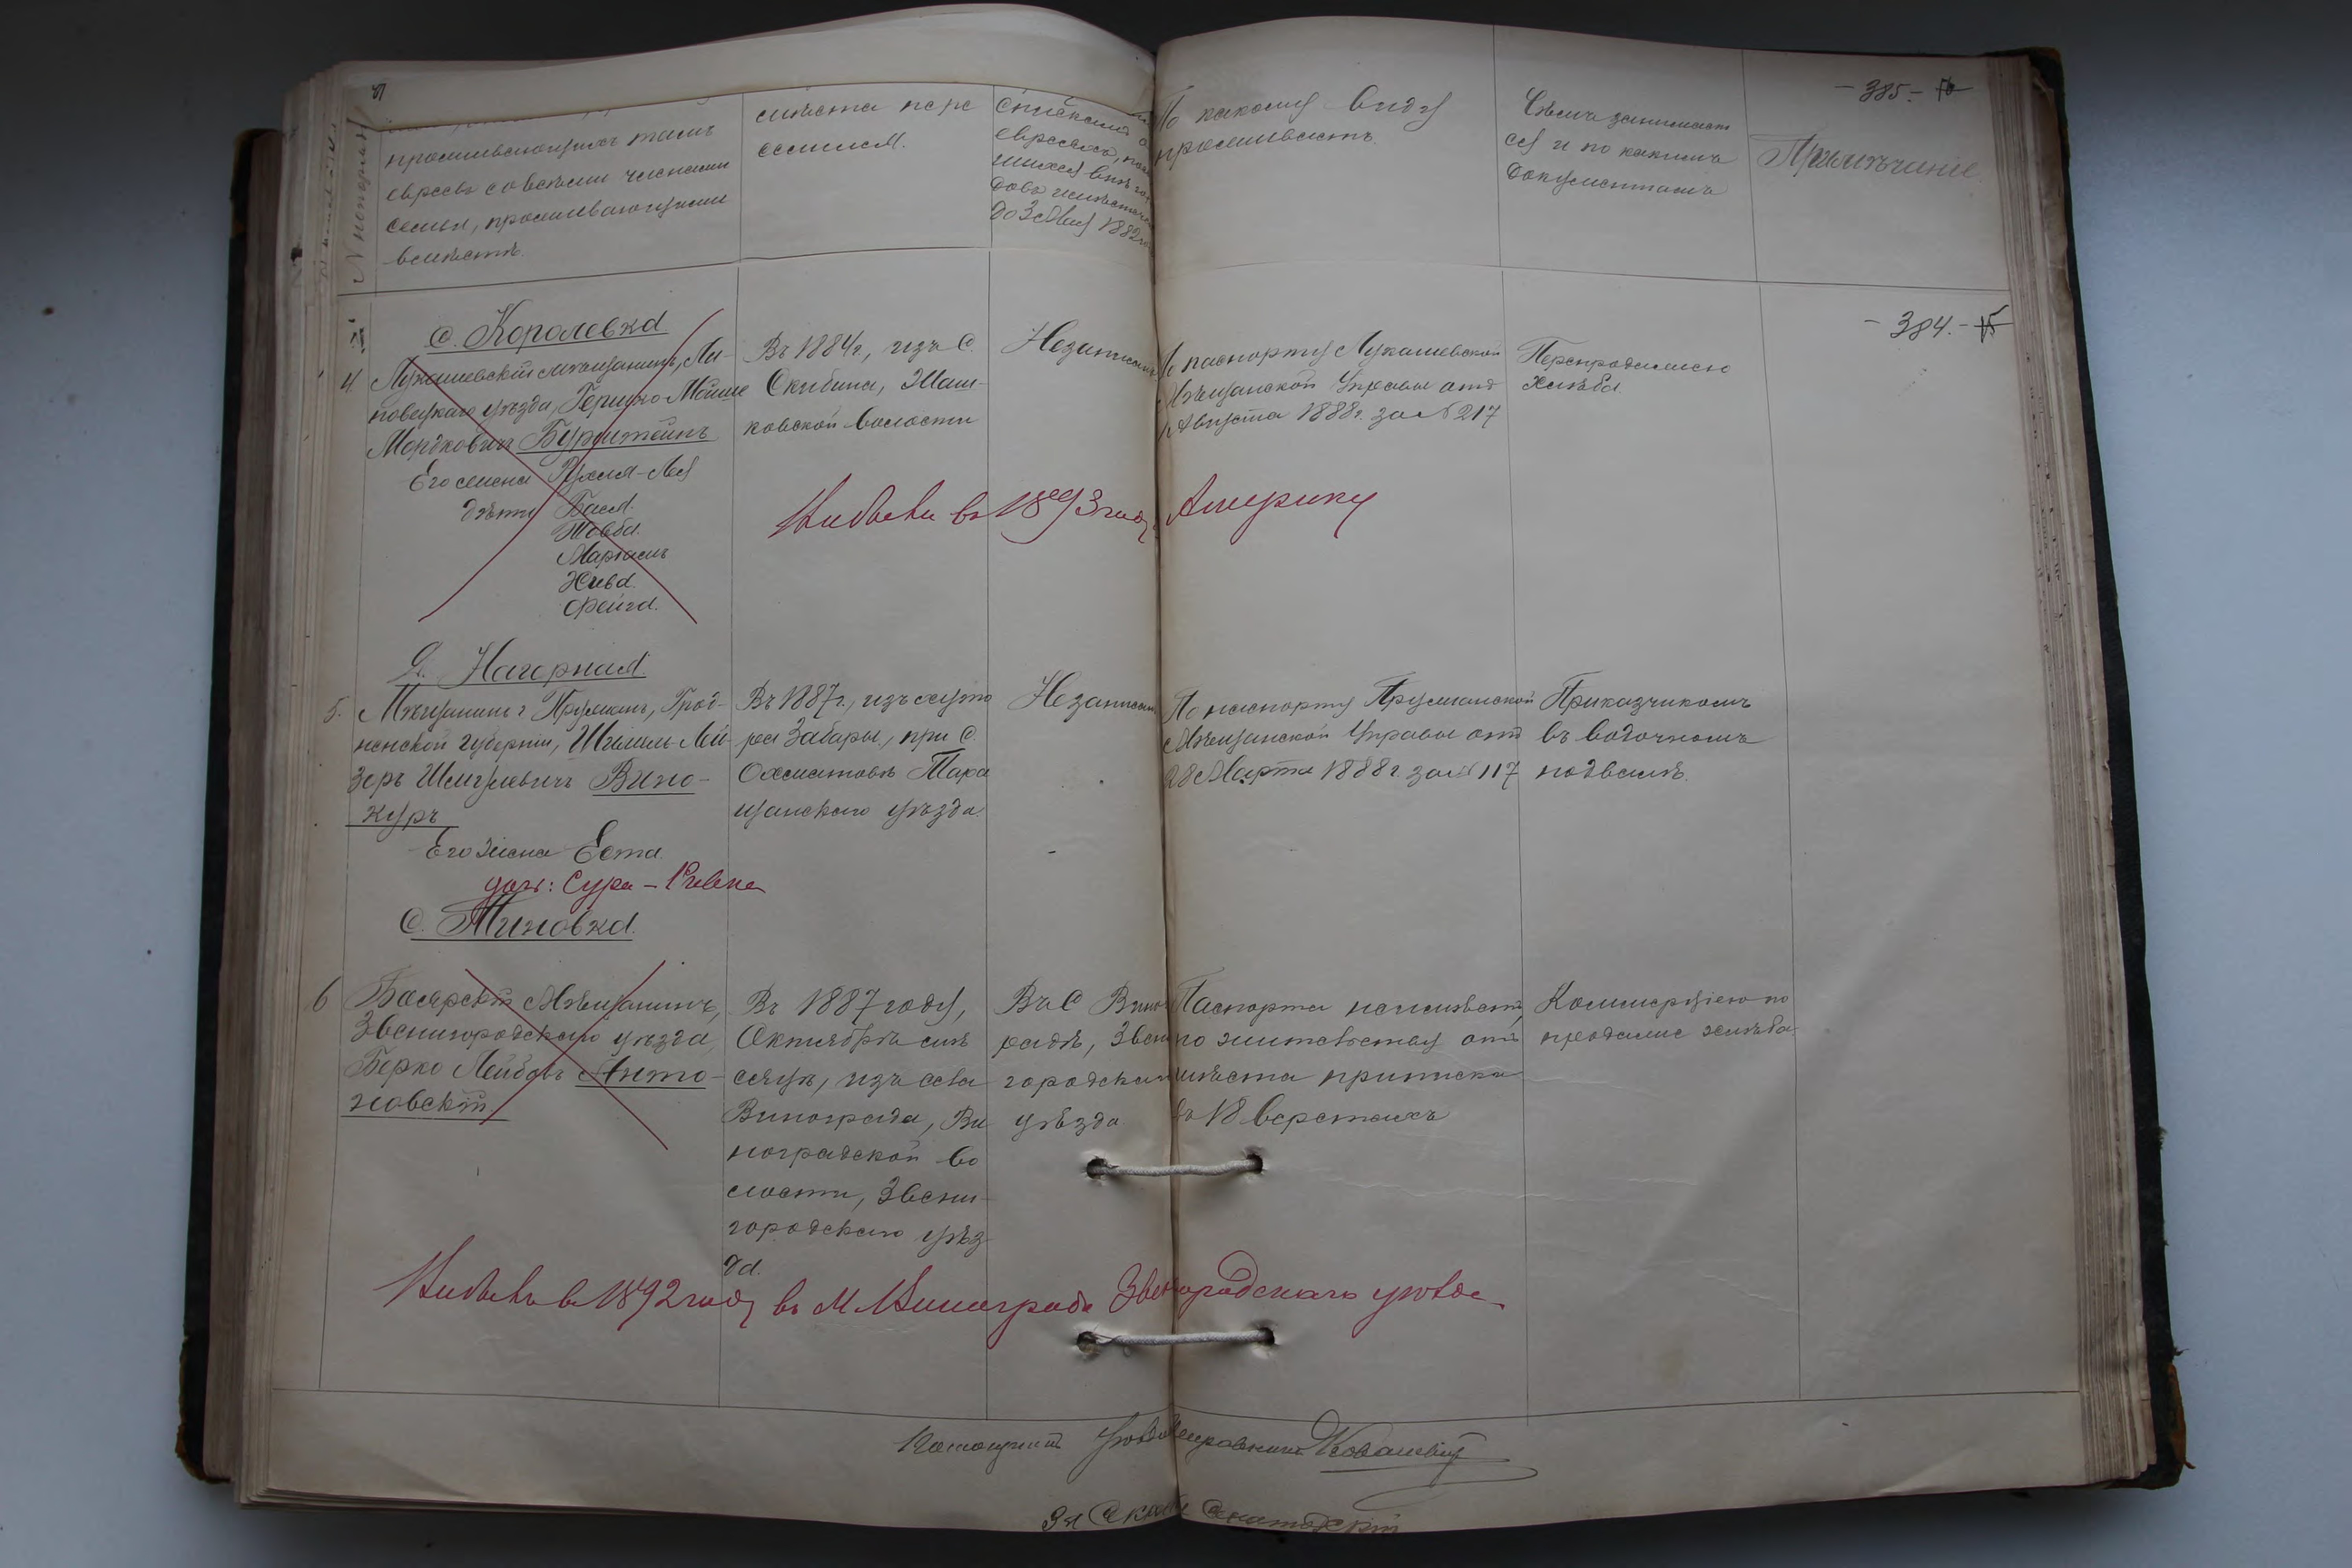 проживающихъ тамъ
евреевъ со всѣми членами
семьи, проживающими
вмѣстѣ.
мѣста пере
селился.
до 3 Мая 1882
По какому виду
проживаетъ.
Чѣмъ занимает
ся и по какимъ
документамъ
Примѣчаніе.
- 385. -
- 384. -
С. Королевка
4
Лукашевскій мѣщанинъ, Ли-
повецкаго уѣзда, Гершко-Мойше
Мордковичъ Бурштейнъ
Его жена Рухля-Лея
дѣти Бася.
Товба.
Маріасъ
Хива.
Фейга.
Въ 1884 г., изъ С.
Скибина, Жаш-
ковской волости
Незаписанъ
По паспорту Лукашевской
Мѣщанской Управы отъ
Августа 1888 г. за № 217
Перепродажею
хлѣба.
Выбыли въ 1893 году Америку
Д. Нагорная
5.
Мѣщанинъ г. Пружанъ, Грод-
ненской губерніи, Шмиль-Лей-
зеръ Шмулевичъ Вино-
куръ
Его жена Еста.
дочь: Сура - Ривка
Въ 1887 г., изъ хуто
ра Забары, при С.
Охматовѣ Тара
щанскаго уѣзда.
Незаписанъ
По паспорту Пружанской
Мѣщанской Управы отъ
28 Марта 1888 г. за № 117
Приказчикомъ
въ водочномъ
подвалѣ.
С. Тиновка.
6
Боярскій Мѣщанинъ,
Звенигородскаго уѣзда,
Берко Лейбовъ Анто-
новскій
Въ 1887 году,
Октябрѣ мѣ
сяцѣ, изъ села
Винограда, Ви
ноградской во
лости, Звени-
городскаго уѣз-
да.
Въ С. Вино
градѣ, Звени
городскаго
уѣзда.
Паспорта неимѣетъ,
по жительству отъ
мѣста приписки
въ 18 верстахъ
Коммерціею по
продажѣ хлѣба.
Выбылъ въ 1892 году въ М. Виноградъ Звенигородскаго уѣзда.
Помощникъ Уѣзднаго Исправника Ковалевскій
За Секр.